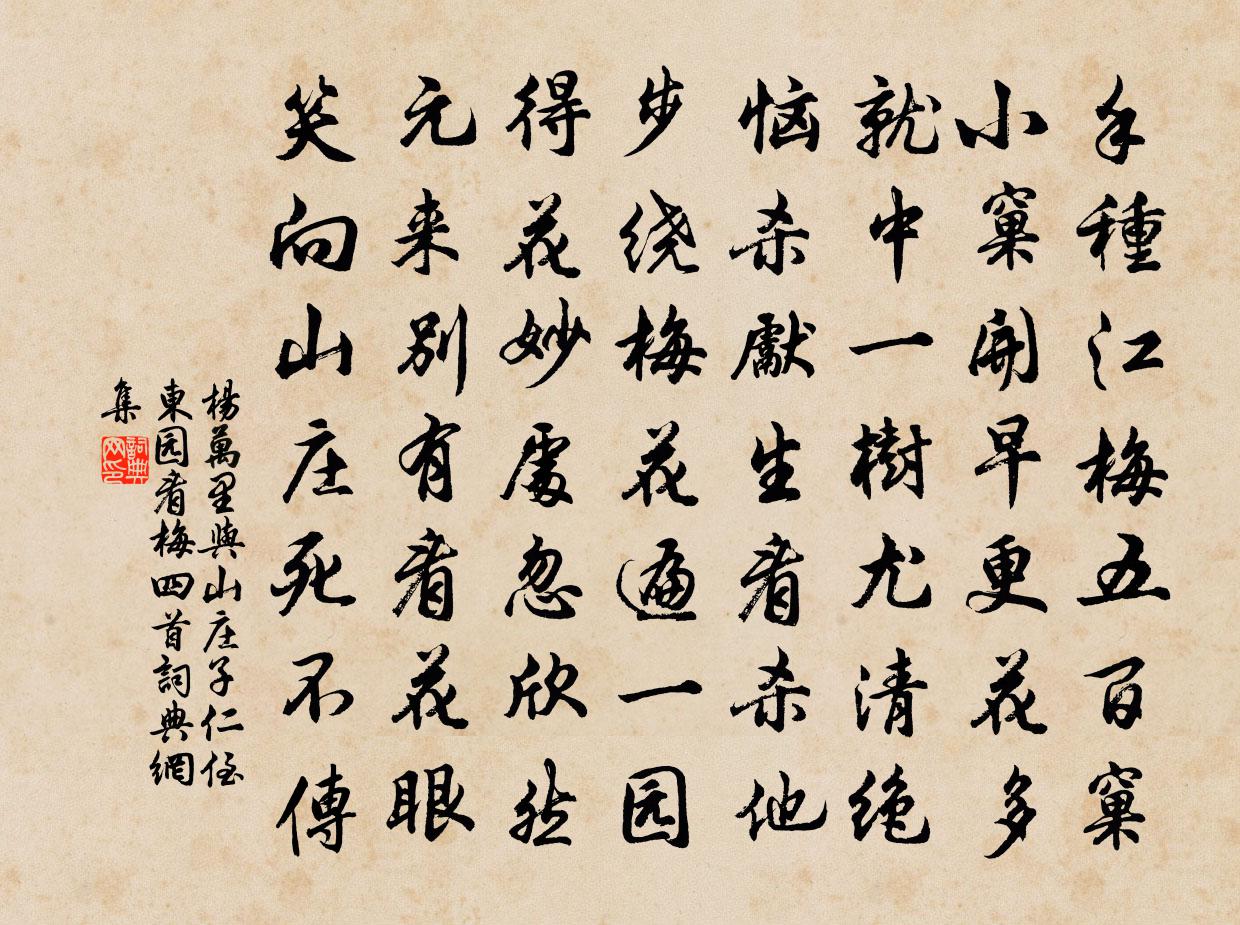 手種江梅五百窠
小窠開早更花多
就中一樹尤清绝
恼杀獻生看杀他
步绕梅花遍一园
得花妙處忽欣然
元来别有看花眼
笑向山庄死不傳
楊萬里與山庄子仁侄
東园看梅四首詞典網
集
詞典网印